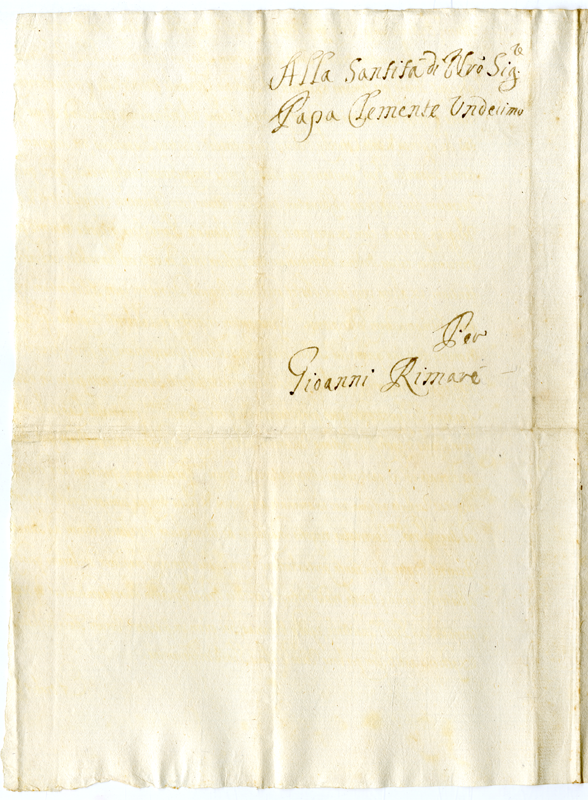 Alla Santità di Nrõ Sig.re
Papa Clemente Undecimo
Per
Gioanni Rimaré